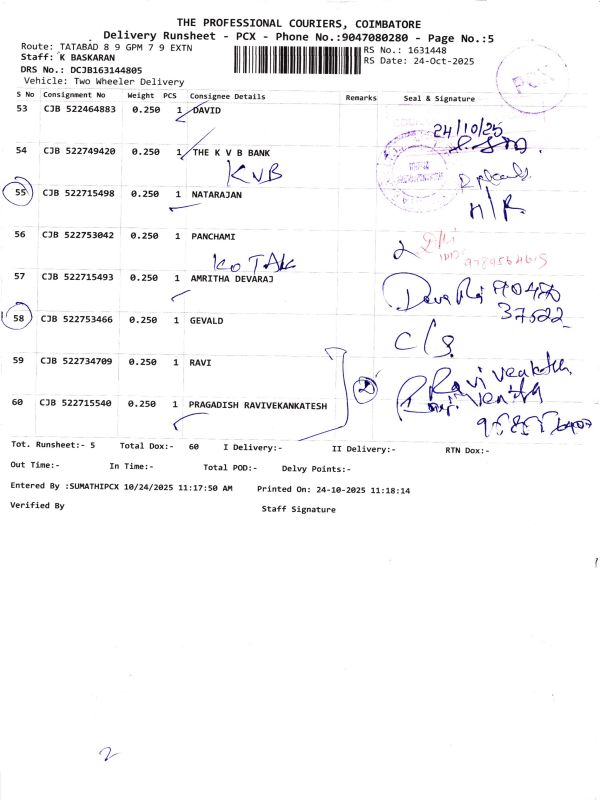 THE PROFESSIONAL COURIERS, COIMBATORE
Delivery Runsheet - PCX - Phone No.:9047080280 - Page No.:5
Route: TATABAD 8 9 GPM 7 9 EXTN RS No.: 1631448
Staff: K BASKARAN RS Date: 24-Oct-2025
DRS No.: DCJB163144805
Vehicle: Two Wheeler Delivery
S No Consignment No Weight PCS Consignee Details Remarks Seal & Signature
53 CJB 522464883 0.250 1 DAVID
24/10/25
54 CJB 522749420 0.250 1 THE K V B BANK
KVB
55 CJB 522715498 0.250 1 NATARAJAN
N/R
56 CJB 522753042 0.250 1 PANCHAMI
KOTAK
57 CJB 522715493 0.250 1 AMRITHA DEVARAJ
37522
58 CJB 522753466 0.250 1 GEVALD
C/S.
59 CJB 522734709 0.250 1 RAVI
Ravi Venkatesh
2
60 CJB 522715540 0.250 1 PRAGADISH RAVIVEKANKATESH
Tot. Runsheet:- 5 Total Dox:- 60 I Delivery:- II Delivery:- RTN Dox:-
Out Time:- In Time:- Total POD:- Delvy Points:-
Entered By :SUMATHIPCX 10/24/2025 11:17:50 AM Printed On: 24-10-2025 11:18:14
Verified By Staff Signature
2